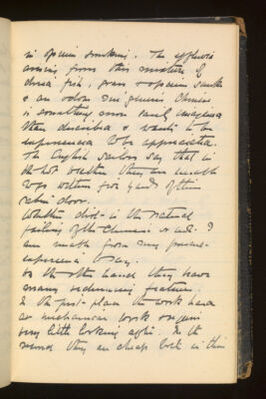 in opium smoking. The effluvia
arising from this mixture of
dried fish, grass & opium smoke
& an odor sui generis Chinese
is something more easily imagined
than described & wants to be
experienced to be appreciated.
The English sailors say that in
the hot weather they are unable
to go within five yards of their
cabin door.
Whether dirt is the natural
failing of the Chinese or not I
am unable from my present
experience to say.
On the other hand they have
many redeeming features.
In the first place they work hard
as mechanics work on
very little looking after. In the
second they are cheap both in their